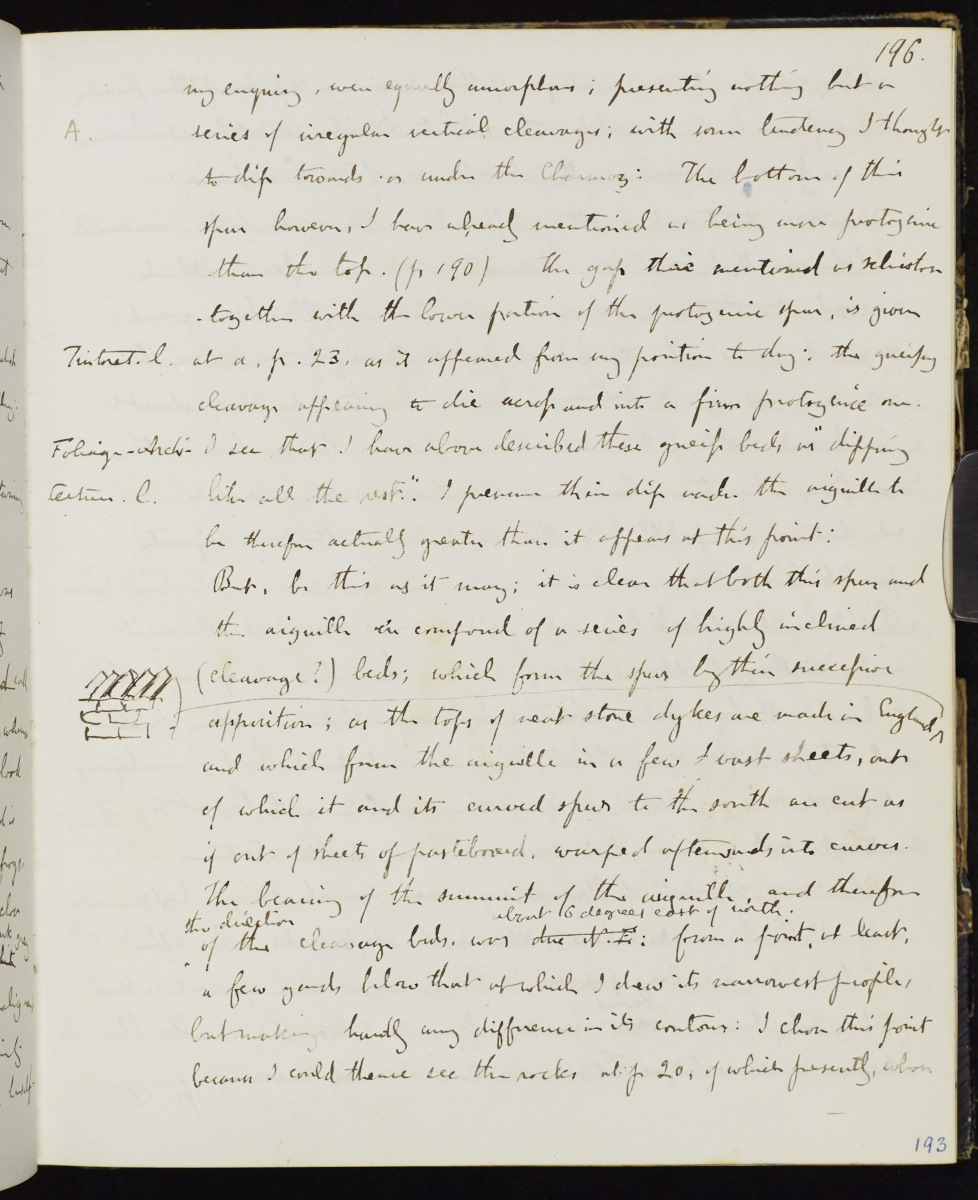 196.
my enquiry, were equally amorphous; presenting nothing but a
A.
series of irregular vertical cleavages; with some tendency I thought
to dip towards or under the Charmoz: The bottom of this
spur however, I have already mentioned as being more protogine
than the top. (p 190) The gap there mentioned as schistose
together with the lower portion of the protogine spur, is given
Tintoret. l.
at a. p. 23. as it appeared from my position to day; the gneissy
cleavage appearing to die across and into a firm protogine one.
Foliage-Archi-
I see that I have above described these gneiss beds as "dipping
tecture. l.
like all the rest". I presume their dip under the aiguille to
be therefore actually greater than it appears at this point:
But, be this as it may; it is clear that both this spur and
the aiguille are composed of a series of highly inclined
(cleavage?) beds; which form the spur by their successive
apposition; as the tops of neat stone dykes are made in England,
and which form the aiguille in a few vast sheets, out
of which it and its curved spurs to the south are cut as
if out of sheets of pasteboard, warped afterwards into curves.
The bearing of the summit of the aiguille, and therefore
the direction
about 6 degrees east of north.
of the cleavage beds. was due N. E: from a point, at least,
a few yards below that at which I drew its narrowest profile,
but making hardly any difference in its contour: I chose this point
because I could thence see the rocks at p 20, of which presently, whose
193